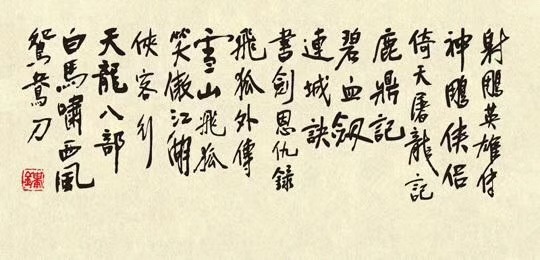 射鵰英雄传
神鵰俠侣
倚天屠龍記
鹿鼎記
碧血劍
連城訣
書劍恩仇錄
飛狐外傳
雪山飛狐
笑傲江湖
俠客行
天龍八部
白馬嘯西風
鴛鴦刀